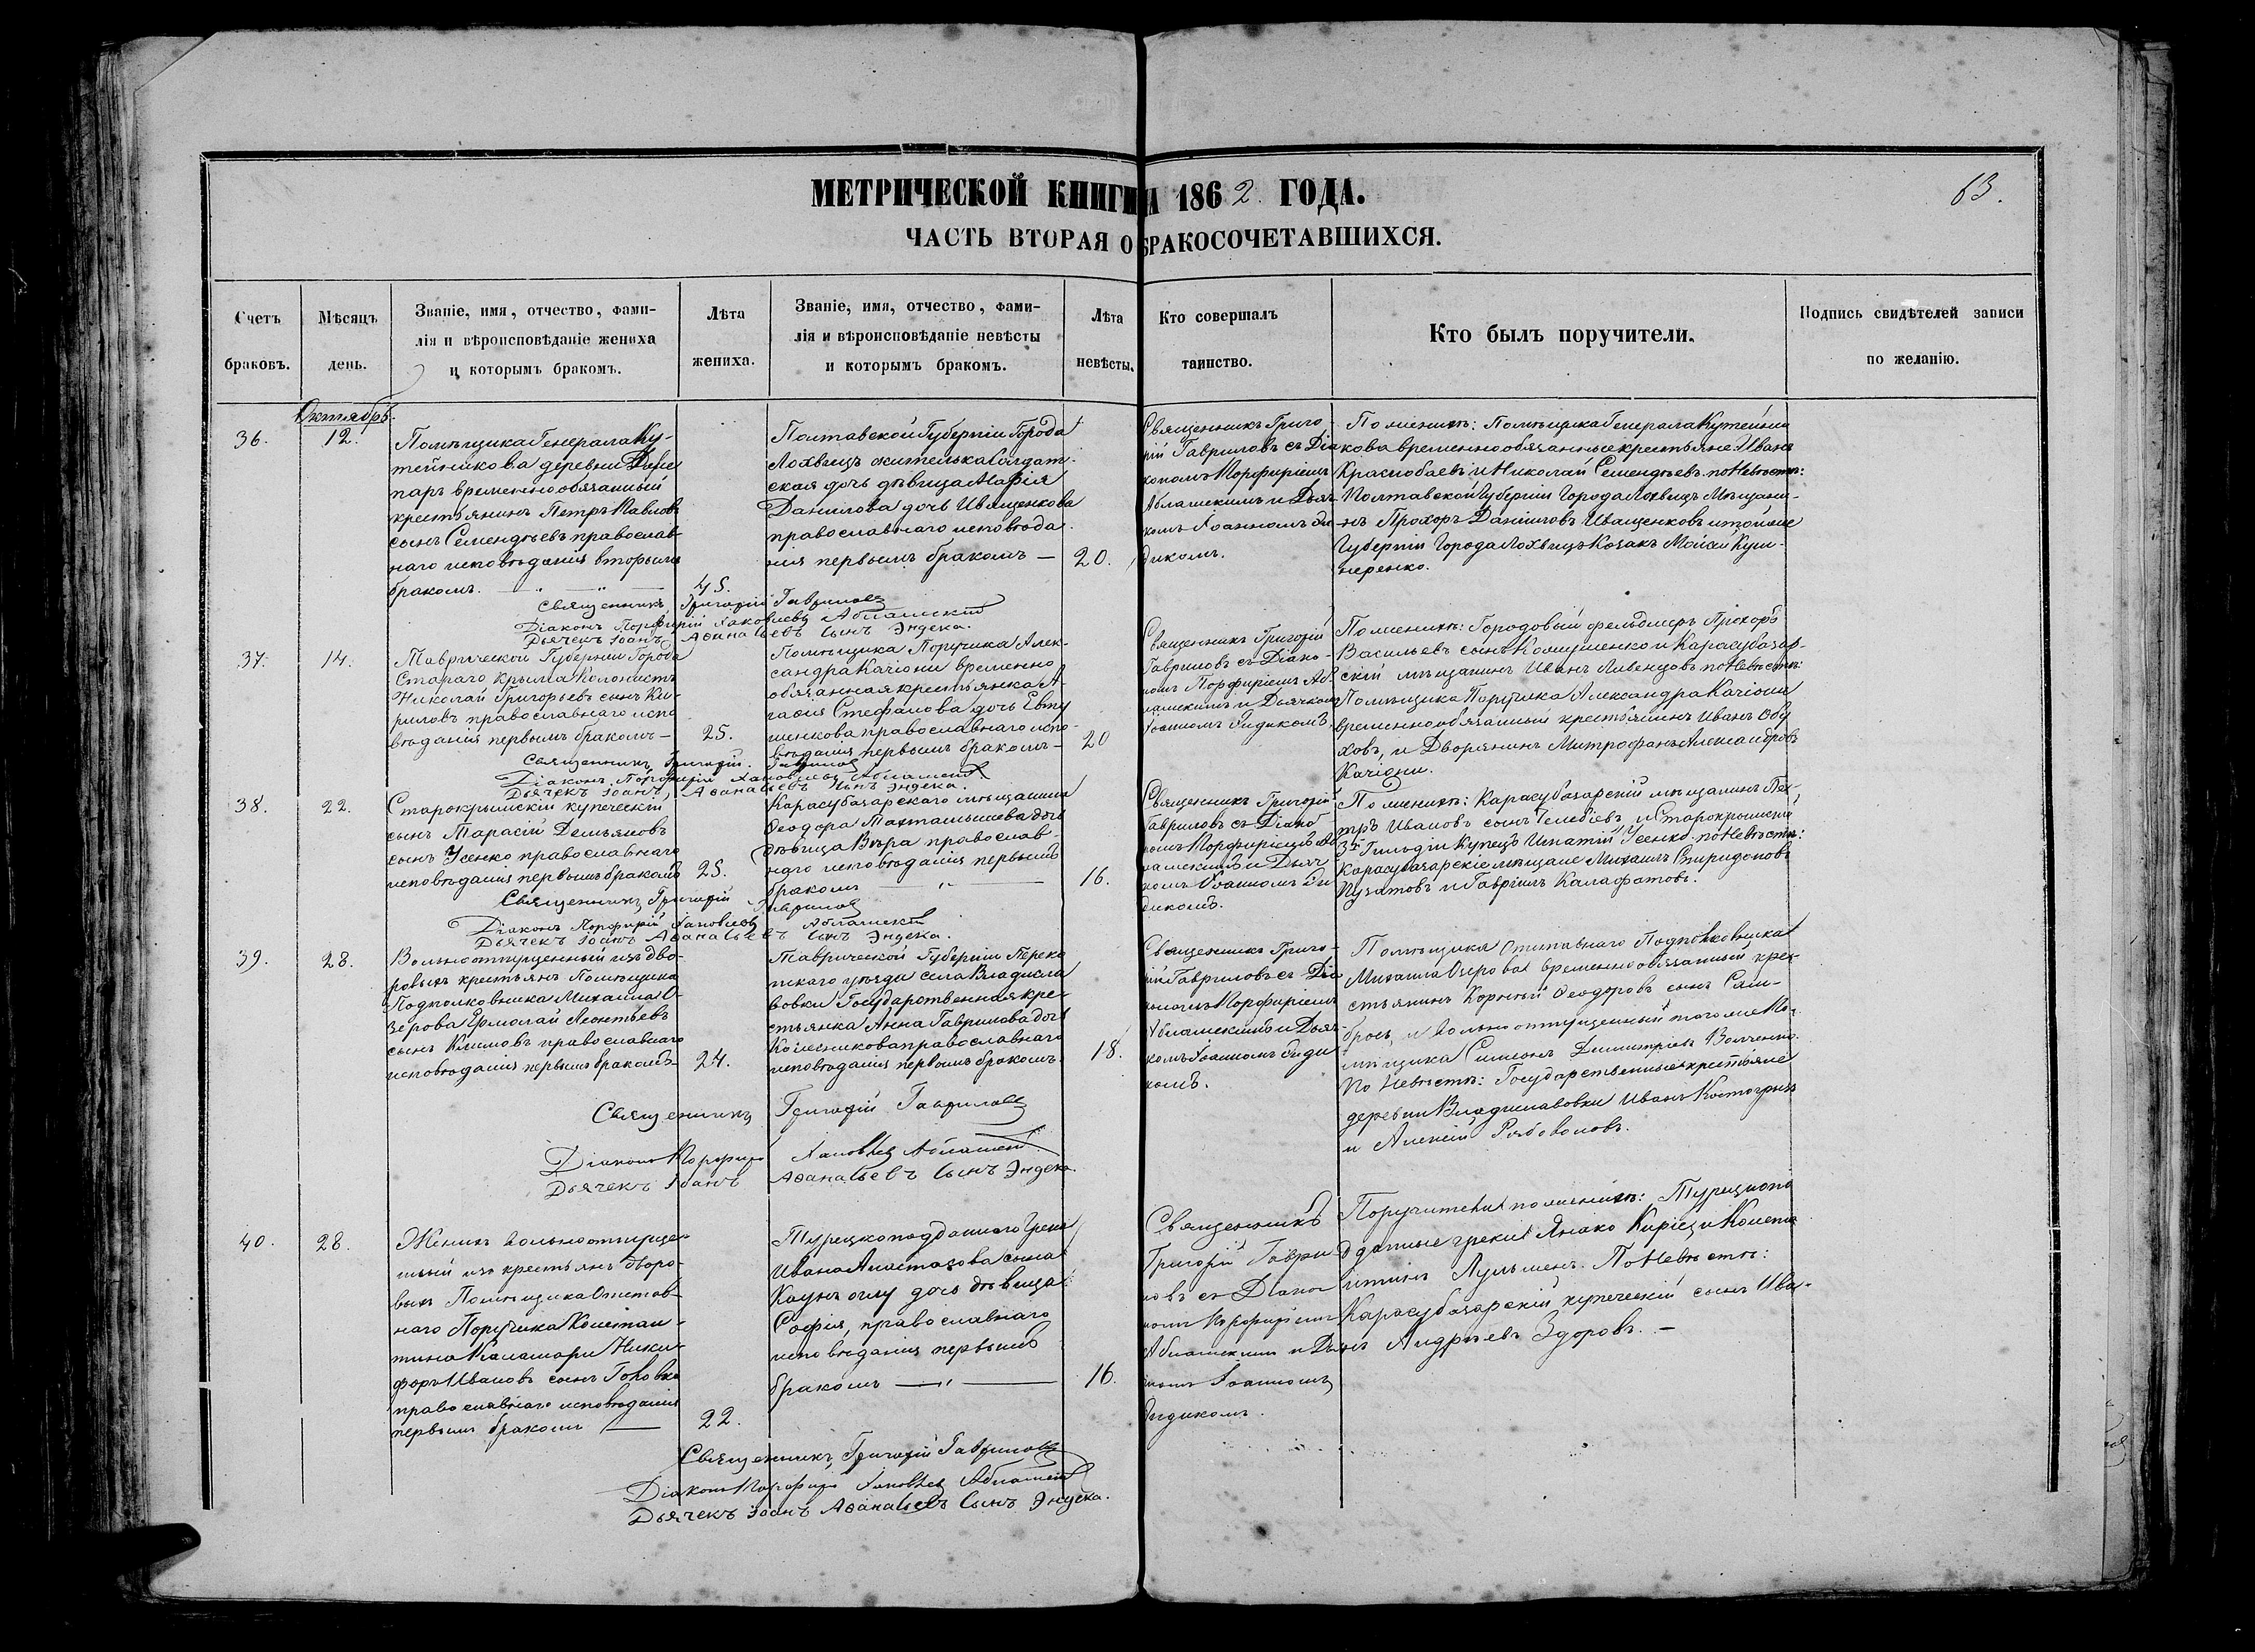 МЕТРИЧЕСКОЙ КНИГИ НА 1862. ГОДА.
63.
ЧАСТЬ ВТОРАЯ О БРАКОСОЧЕТАВШИХСЯ.
Счетъ браковъ.
Мѣсяцъ день.
Званіе, имя, отчество, фами-
лія и вѣроисповѣданіе жениха
и которымъ бракомъ.
Лѣта жениха.
Званіе, имя, отчество, фами-
лія и вѣроисповѣданіе невѣсты
и которымъ бракомъ.
Лѣта невѣсты.
Кто совершалъ
таинство.
Кто былъ поручители.
Подпись свидѣтелей записи
по желанію.
Октябрь.
36.
12.
Помѣщика Генерала Ку-
тейникова деревни
паръ временнообязанный
крестьянинъ Петръ Павловъ
сынъ Семендѣевъ православ-
наго исповѣданія вторымъ
бракомъ.
45.
Полтавской Губерніи Города
Лохвицъ жителька Солдат-
ская дочь дѣвица Марія
Данилова дочь Иващенкова
православнаго исповѣда-
нія первымъ бракомъ —
20.
Священникъ Григо-
рій Гавриловъ съ Діа
кономъ Порфиріемъ
Абламскимъ и Дьяч-
комъ Іоанномъ Эн-
дикомъ.
По женихѣ: Помѣщика Генерала Кутейни
кова временнообязанные крестьяне: Иванъ
Краснобаевъ и Николай Семендѣевъ. по Невѣстѣ:
Полтавской Губерніи Города Лохвицъ Мѣщани-
нъ Прохоръ Даниловъ Иващенковъ и той же
Губерніи Города Лохвицъ Козакъ Мойсей Куш-
неренко.
Священникъ Григорій Гавриловъ
Діаконъ Порфирій Яковлевъ Абламскій
Дьячекъ Іоанъ Аѳанасьевъ Сынъ Эндека.
37.
14.
Таврической Губерніи Города
Стараго Крыма Колонистъ
Николай Григорьевъ сынъ Ки-
риловъ православнаго испо
вѣданія первымъ бракомъ —
25.
Помѣщика Поручика Алек-
сандра Качіони временно
обязанная крестьянка А-
гафія Стефанова дочь Евту
шенкова православнаго испо-
вѣданія первымъ бракомъ —
20
Священникъ Григорій
Гавриловъ съ Діако-
номъ Порфиріемъ Аб-
ламскимъ и Дьячкомъ
Іоанномъ Эндикомъ.
По женихѣ: Городовый фельдшеръ Прохоръ
Васильевъ сынъ и Карасубазар-
скій мѣщанинъ Иванъ Ливенцовъ. по Невѣстѣ:
Помѣщика Поручика Александра Качіони
временнообязанный крестьянинъ Иванъ Обу
ховъ, и Дворянинъ Митрофанъ Александровъ
Качіони.
Священникъ Григорій Гавриловъ
Діаконъ Порфирій Яковлевъ Абламскій
Дьячекъ Іоанъ Аѳанасьевъ Сынъ Эндека.
38.
22.
Старокрымскій купеческій
сынъ Тарасій Демьяновъ
сынъ Усенко православнаго
исповѣданія первымъ бракомъ
25.
Карасубазарскаго мѣщанина
Ѳеодора Тахтамышева дочь
дѣвица Вѣра православ-
наго исповѣданія первымъ
бракомъ —
16.
Священникъ Григорій
Гавриловъ съ Діако
номъ Порфиріемъ Аб
ламскимъ и Дьяч
комъ Іоанномъ Эн
дикомъ.
По женихѣ: Карасубазарскій мѣщанинъ Пе-
тръ Ивановъ сынъ Челебіевъ, и Старокрымскій
3й Гильдіи Купецъ Игнатій Усенко. по Невѣстѣ:
Карасубазарскіе мѣщане Михаилъ Спиридоновъ
Пузатовъ и Гавріилъ Калафатовъ.
Священникъ Григорій Гавриловъ
Діаконъ Порфирій Яковлевъ Абламскій
Дьячекъ Іоанъ Аѳанасьевъ Сынъ Эндека.
39.
28.
Вольноотпущенный изъ дво-
ровыхъ крестьянъ Помѣщика
Подполковника Михаила О-
зерова Ермолай Леонтьевъ
сынъ Климовъ православнаго
исповѣданія первымъ бракомъ —
24.
Таврической Губерніи Переко
пскаго уѣзда села Владисла
вовки Государственная кре-
стьянка Анна Гаврилова дочь
Колесникова православнаго
исповѣданія первымъ бракомъ
18.
Священникъ Григо-
рій Гавриловъ съ Діа
кономъ Порфиріемъ
Абламскимъ и Дьяч-
комъ Іоанномъ Энди
комъ.
Помѣщика Отставнаго Подполковника
Михаила Озерова временнообязанный кре-
стьянинъ Корнѣй Ѳеодоровъ сынъ Сам-
брось, и вольноотпущенный того же По-
мѣщика Симеонъ Димитріевъ Волченко.
По Невѣстѣ: Государственные крестьяне
деревни Владиславовки Иванъ Костогрызъ
и Алексій Рябовоновъ.
Священникъ Григорій Гавриловъ
Діаконъ Порфирій Яковлевъ Абламскій
Дьячекъ Іоанъ Аѳанасьевъ Сынъ Эндека.
40.
28.
Женихъ вольноотпуще-
нный изъ крестьянъ дворо-
выхъ Помѣщика Отстав-
наго Поручика Констан-
тина Каламари Ники-
форъ Ивановъ сынъ Головко
православнаго исповѣданія
первымъ бракомъ —
22.
Турецкоподданнаго Грека
Ивана Анастазова сына
Каунъ оглу дочь дѣвица
Софія, православнаго
исповѣданія первымъ
бракомъ —
16.
Священникъ
Григорій Гаври
ловъ съ Діако
номъ Порфиріемъ
Абламскимъ и Дьяч
комъ Іоанномъ
Эндикомъ.
Поручители по женихѣ: Турецкопо
дданные греки Янако Киріец и Конста
нтинъ . По Невѣстѣ:
Карасубазарскій купеческій сынъ Ива-
нъ Андреевъ Здоровъ. —
Священникъ Григорій Гавриловъ
Діаконъ Порфирій Яковлевъ Абламскій
Дьячекъ Іоанъ Аѳанасьевъ Сынъ Эндека.